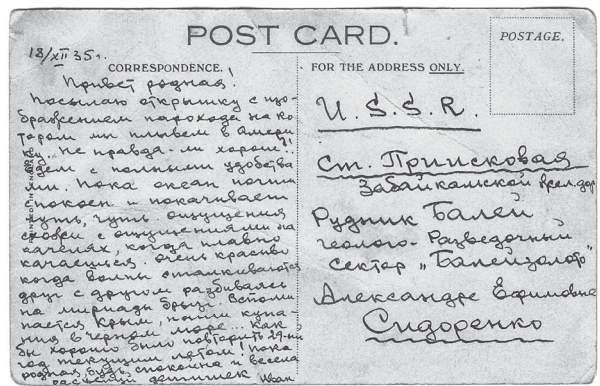 POST CARD.
POSTAGE.
18/XII 35г.
CORRESPONDENCE.
FOR THE ADDRESS ONLY.
Привет родная!
Посылаю открытку с изо-
бражением парохода на ко-
тором мы плывем в Амери-
ку. Не правда-ли хорош!..
едем с полными удобства
ми. Пока океан почти
спокоен и покачивает
чуть, чуть. ощущения
схожи с ощущениями на
качелях, когда плавно
качаешься. очень красиво
когда волны сталкиваются
друг с другом разбиваясь
на мириады брызг. Вспоми
нается Крым, наши купа-
ния в Черном море... Как
бы хорошо было повторить 29-ый
год текущим летом! Пока
родная, будь спокойна и весела
Иван
U.S.S.R.
ст. Приисковая
Забайкальской жел.дор
Рудник Балей
геолого-Разведочный
сектор „Балейзолото"
Александре Ефимовне
Сидоренко